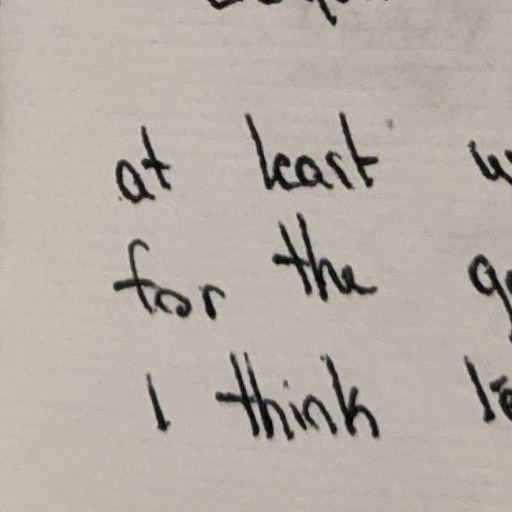 at least
for the
I think